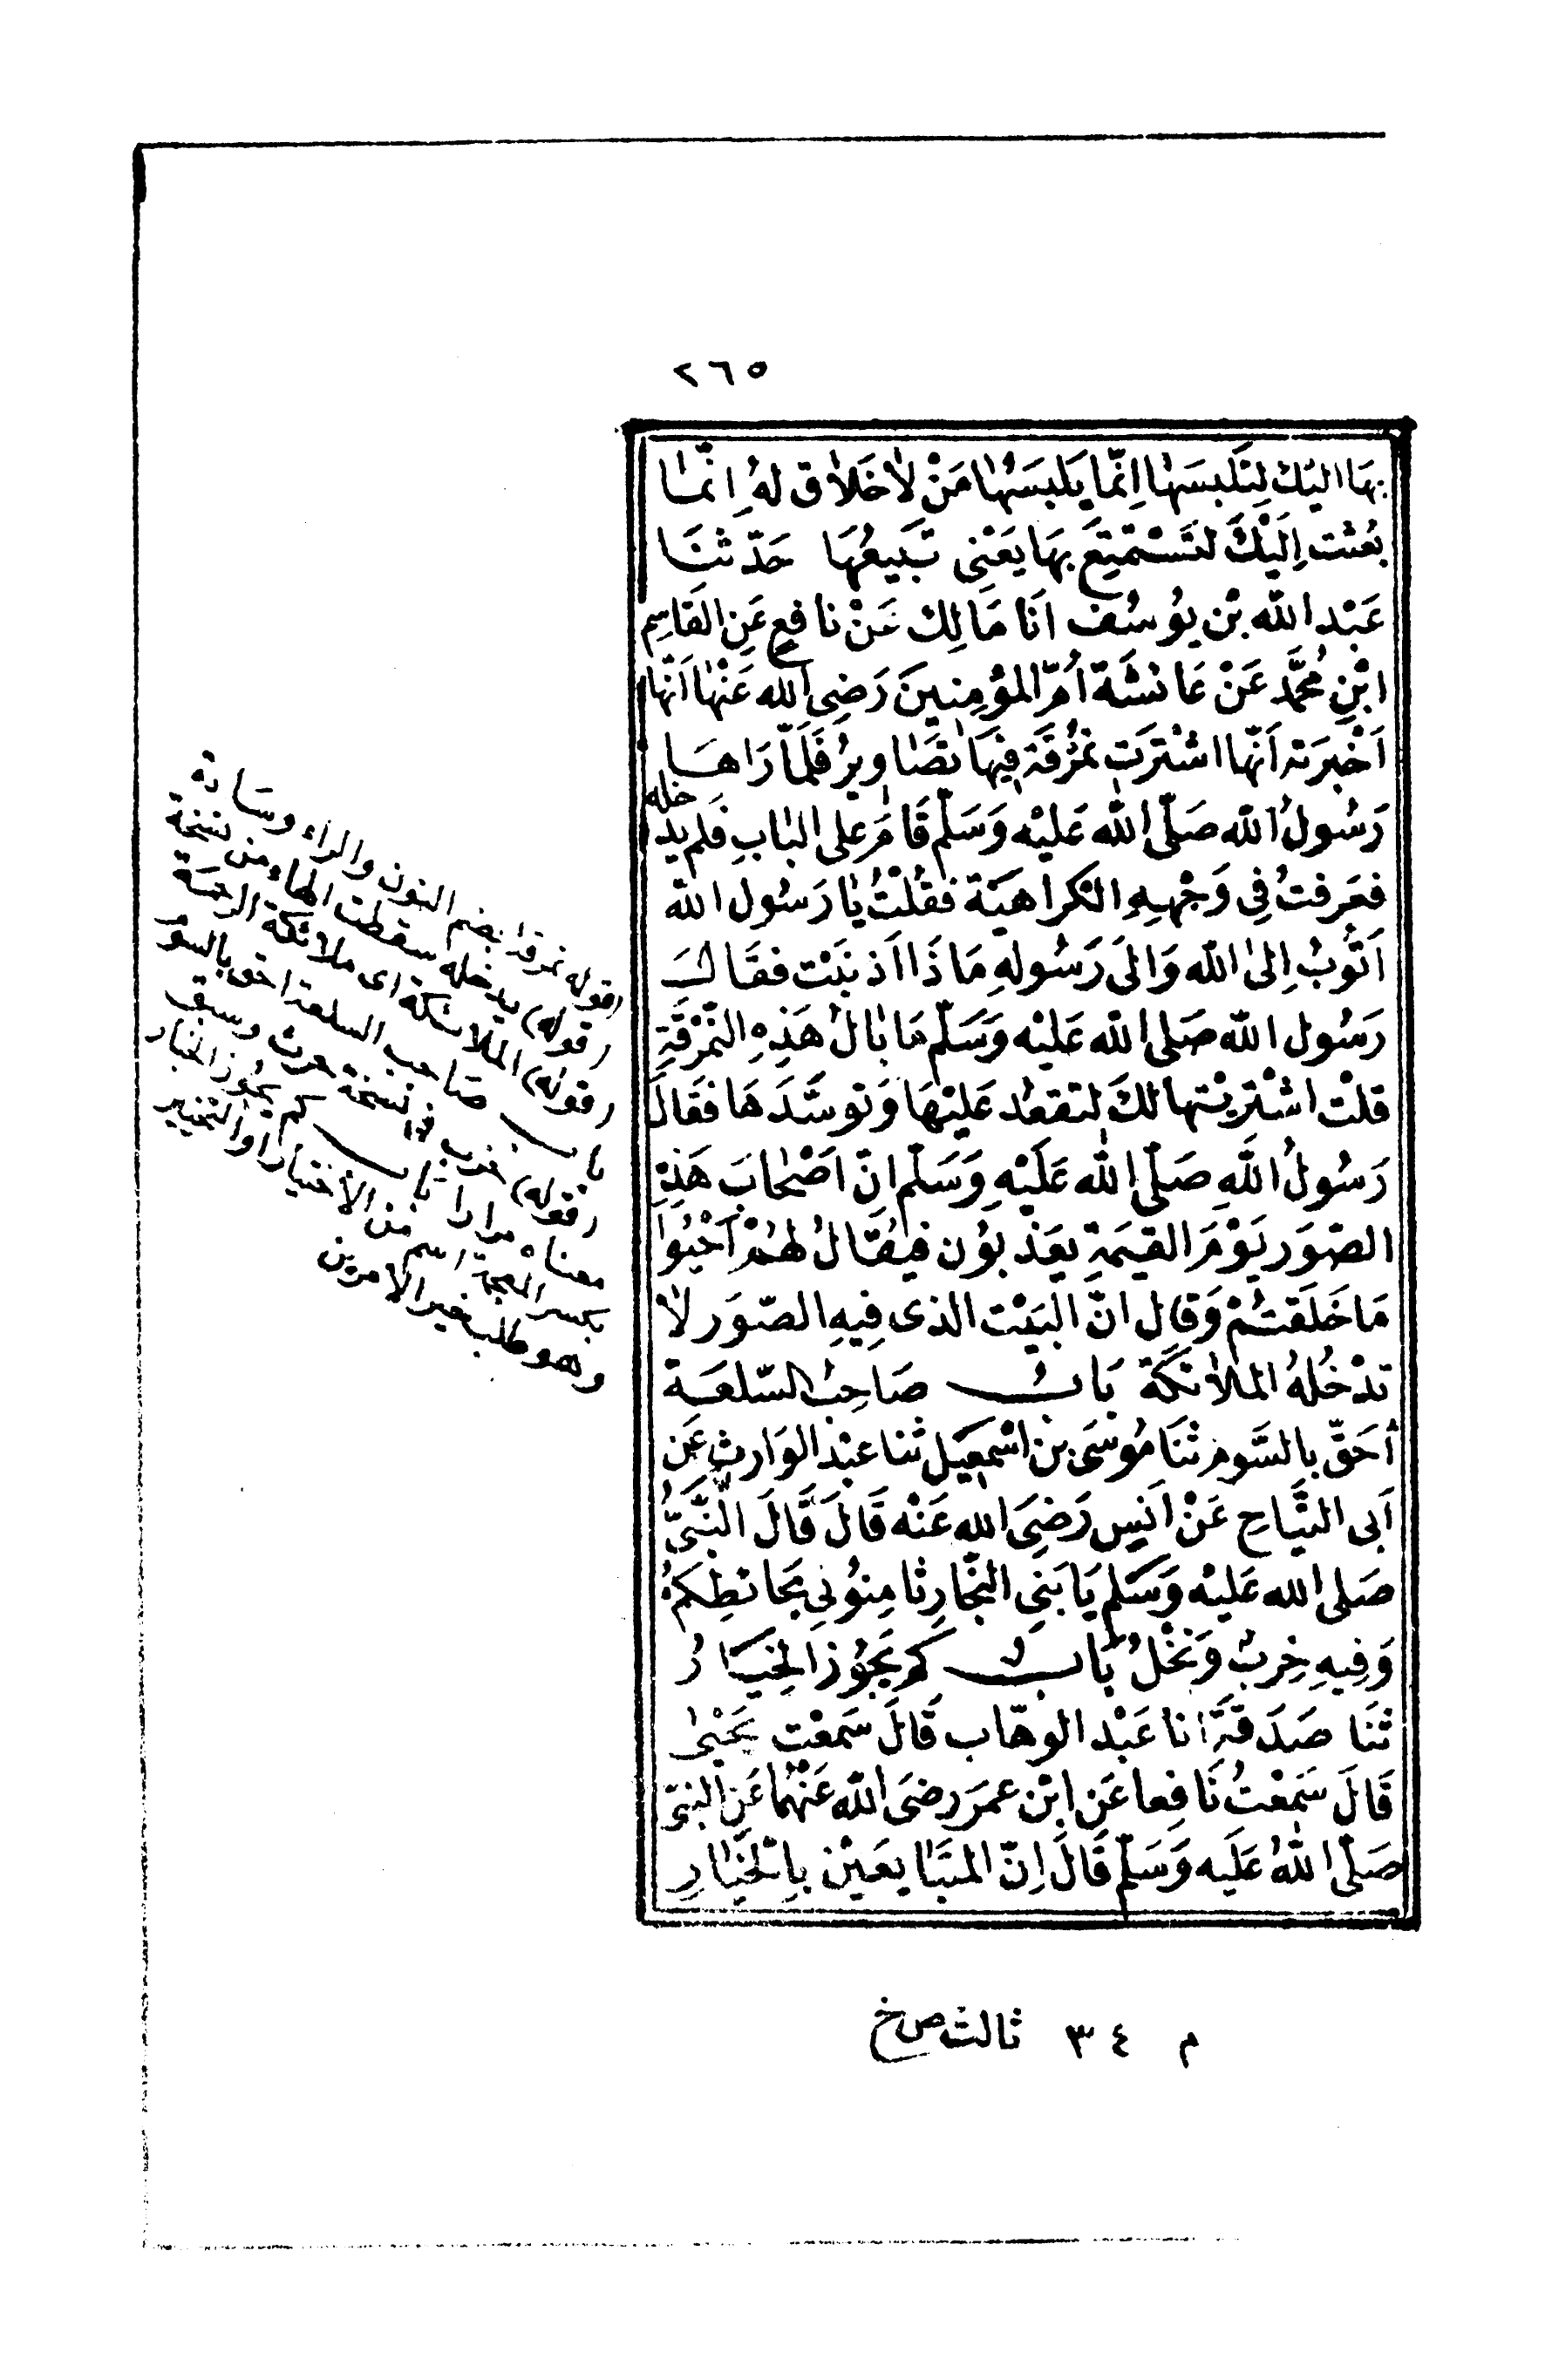 ٢٦٥
بهَا اليك لِتَلبسَهٰا اِنّما يَلبسَهُٰا مَنْ لاٰخَلاٰق لهُ اِنّمٰا
بعثت اِلَيْكَ لتَسْتمْتِعَ بهَا يَعْنِى تبَيعُهَا حَدّثنَا
عَبْد الله بْن يوُسُف اَنَا مَالِك عَنْ نافعٍ عَنِ القاسِم
ابْنِ محُمَّد عَنْ عَائشَة اُمّ المؤمِنينَ رَضِى الله عَنْهٰا اَنّهٰا
اَخْبرَته اَنّهٰا اشْترَت نمْرُقَة فِيهَا تصَٰاويرُ فَلَمّا رَاهَا
رَسُولُ الله صَلّى الله عَليْه وَسَلّم قَامَ على البٰابِ فلم يدخله
فعَرفتُ فِى وَجْهِهِ الكراهيَة فقُلْتُ يٰا رَسُول الله
اَتُوبُ اِلىٰ الله وَالىَ رَسُولهِ مَاذَا اَذنبَت فقَال
رَسُول الله صَلى الله عَليْه وَسَلّم مَا بٰالُ هَذِهِ النّمْرُقَةِ
قلْت اشْتريْتها لكَ لتقعُد عَليْهَا وَتوسَّدَهَا فقَالَ
رَسُولُ اللَّهِ صَلّى الله عَلَيْهِ وَسَلّم انّ اَصْحٰابَ هَذِهِ
الصّوَر يَوْمَ القيمَةِ يعَذبوُن فيُقَالُ لهُمْ اَحْيُوا
مَا خَلَقتُمْ وَقال انّ البَيْت الذى فِيهِ الصّوَر لاٰ
تدْخُلهُ الملاٰئكَة بَابُ صَاحِبُ السّلعَة
أحَقّ بالسَّوم ثنَا مُوسَى بن اسْمعِيل ثنا عبْد الوَارث عَن
اَبى التيَّاحِ عَنْ اَنَسٍ رَضِىَ الله عَنْه قَالَ قَالَ النّبىُّ
صَلى الله عَليْه وَسَلم يَا بَنِى النجَّارِ ثامِنوُنِى بحَائطِكمُ
وَفِيهِ خِربٌ وَنخْلٌ بَابُ كم يَجُوز الخِيَارُ
ثنَا صَدَقَة انا عَبْد الوهّاب قَالَ سَمعْت يَحْيىٰ
قَالَ سَمْعتُ نَافِعا عَن ابْن عمرَ رضىَ الله عَنْهُمَا عَنِ النبىّ
صَلّى اللهُ عَليَه وَسَلّم قَالَ اِنّ المتبَٰايعَيْن بِالخيَٰارِ
(قوله نمرقة) بضم النون والراء وسَادة
(قوله) يدخله سقطت الهاء من نسخة
(قوله) الملائكة اى ملائكة الرحمة
باب صاحب السلعة احق بالسوم
(قوله) خرب فى نسخة حرث وسبق
معناه مرارا باب كم يجُوز الخيار
بكسر المعجمة اسم من الاختيار او التخيير
وهو طلب خير الامرين
م ٣٤ ثالث ص خ